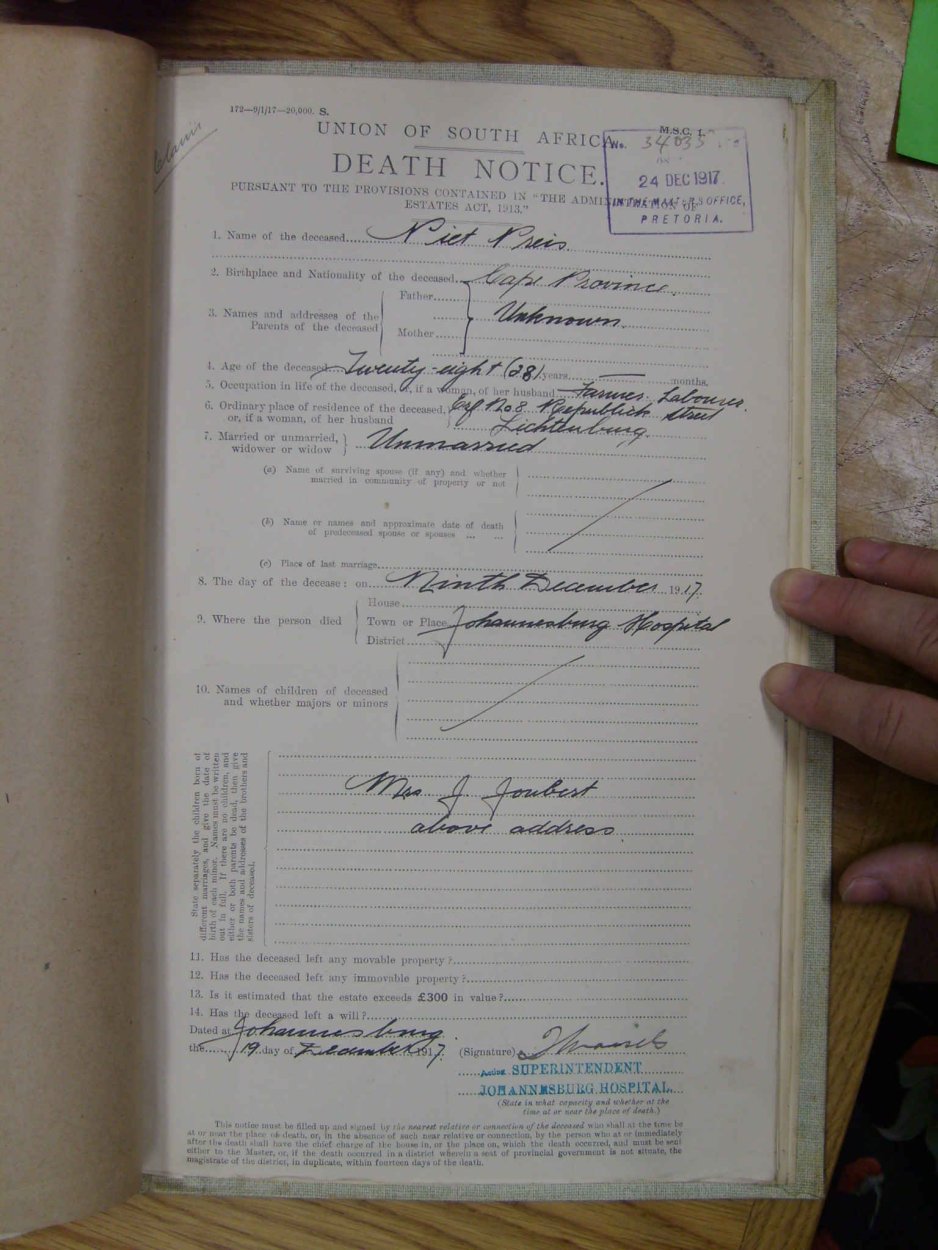 172—9/1/17—20,000. S.
M.S.C. 1.
UNION OF SOUTH AFRICA
No. 34035
DEATH NOTICE.
24 DEC 1917
IN THE MASTER'S OFFICE,
PRETORIA.
PURSUANT TO THE PROVISIONS CONTAINED IN "THE ADMINISTRATION OF
ESTATES ACT, 1913."
1. Name of the deceased Piet Preis
2. Birthplace and Nationality of the deceased Cape Province
3. Names and addresses of the Parents of the deceased
Father
Unknown
Mother
4. Age of the deceased Twenty-eight (28) years — months.
5. Occupation in life of the deceased, or, if a woman, of her husband Farmer Labourer
6. Ordinary place of residence of the deceased, No 8 Republick Street
or, if a woman, of her husband Lichtenburg
7. Married or unmarried, widower or widow Unmarried
(a) Name of surviving spouse (if any) and whether
married in community of property or not
(b) Name or names and approximate date of death
of predeceased spouse or spouses ... ...
(c) Place of last marriage
8. The day of the decease: on Ninth December 1917.
House
9. Where the person died Town or Place Johannesburg Hospital
District
10. Names of children of deceased
and whether majors or minors
State separately the children born of
different marriages, and give the date of
birth of each minor. Names must be written
out in full. If there are no children, and
either or both parents be dead, then give
the names and addresses of the brothers and
sisters of deceased.
Mrs J Joubert
above address
11. Has the deceased left any movable property?
12. Has the deceased left any immovable property?
13. Is it estimated that the estate exceeds £300 in value?
14. Has the deceased left a will?
Dated at Johannesburg
the 19 day of December 1917.
(Signature)
Acting SUPERINTENDENT
JOHANNESBURG HOSPITAL.
(State in what capacity and whether at the
time at or near the place of death.)
This notice must be filled up and signed by the nearest relative or connection of the deceased who shall at the time be
at or near the place of death, or, in the absence of such near relative or connection, by the person who at or immediately
after the death shall have the chief charge of the house in, or the place on, which the death occurred, and must be sent
either to the Master, or, if the death occurred in a district wherein a seat of provincial government is not situate, the
magistrate of the district, in duplicate, within fourteen days of the death.